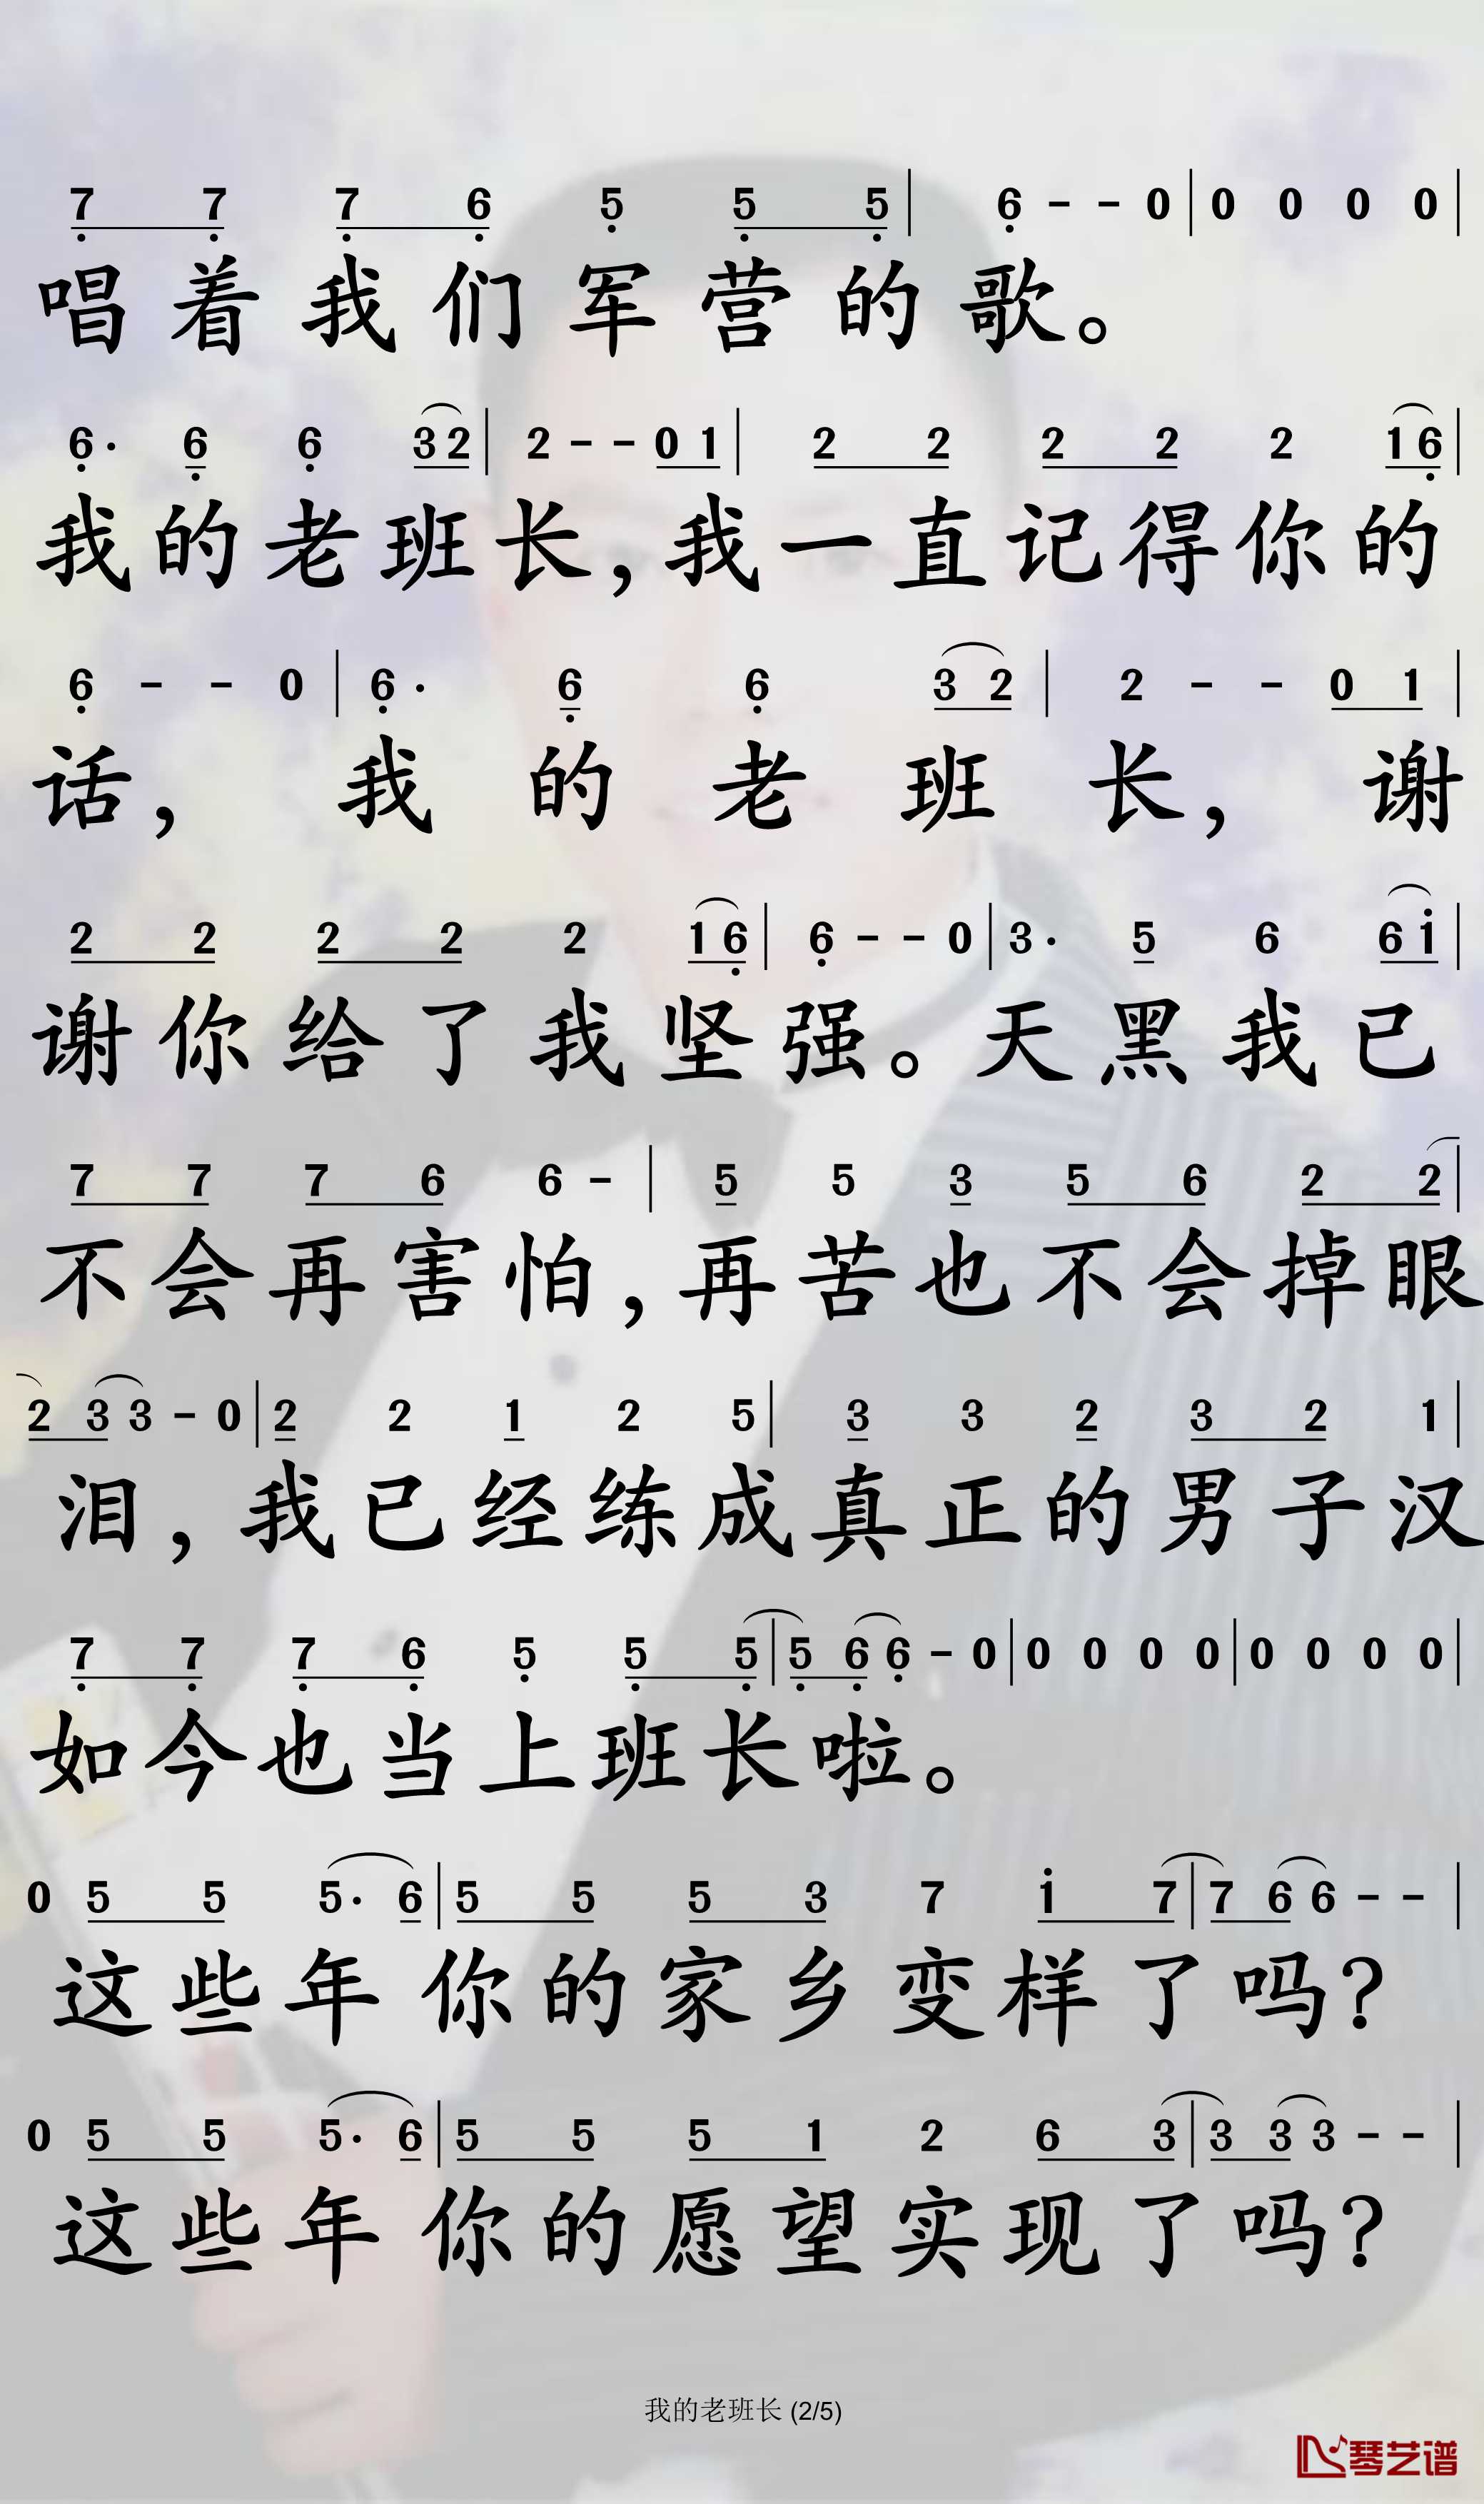 7 7 7 6 5 5 5 | 6 - - 0 | 0 0 0 0 |
唱着我们军营的歌。
6· 6 6 3 2 | 2 - - 0 1 | 2 2 2 2 2 1 6 |
我的老班长,我一直记得你的
6 - - 0 | 6· 6 6 3 2 | 2 - - 0 1 |
话,我的老班长,谢
2 2 2 2 2 1 6 | 6 - - 0 | 3· 5 6 6 i |
谢你给了我坚强。天黑我已
7 7 7 6 6 - | 5 5 3 5 6 2 2 |
不会再害怕,再苦也不会掉眼
2 3 3 - 0 | 2 2 1 2 5 | 3 3 2 3 2 1 |
泪,我已经练成真正的男子汉
7 7 7 6 5 5 5 | 5 6 6 - 0 | 0 0 0 0 | 0 0 0 0 |
如今也当上班长啦。
0 5 5 5· 6 | 5 5 5 3 7 i 7 | 7 6 6 - - |
这些年你的家乡变样了吗?
0 5 5 5· 6 | 5 5 5 1 2 6 3 | 3 3 3 - - |
这些年你的愿望实现了吗?
我的老班长 (2/5)
琴艺谱